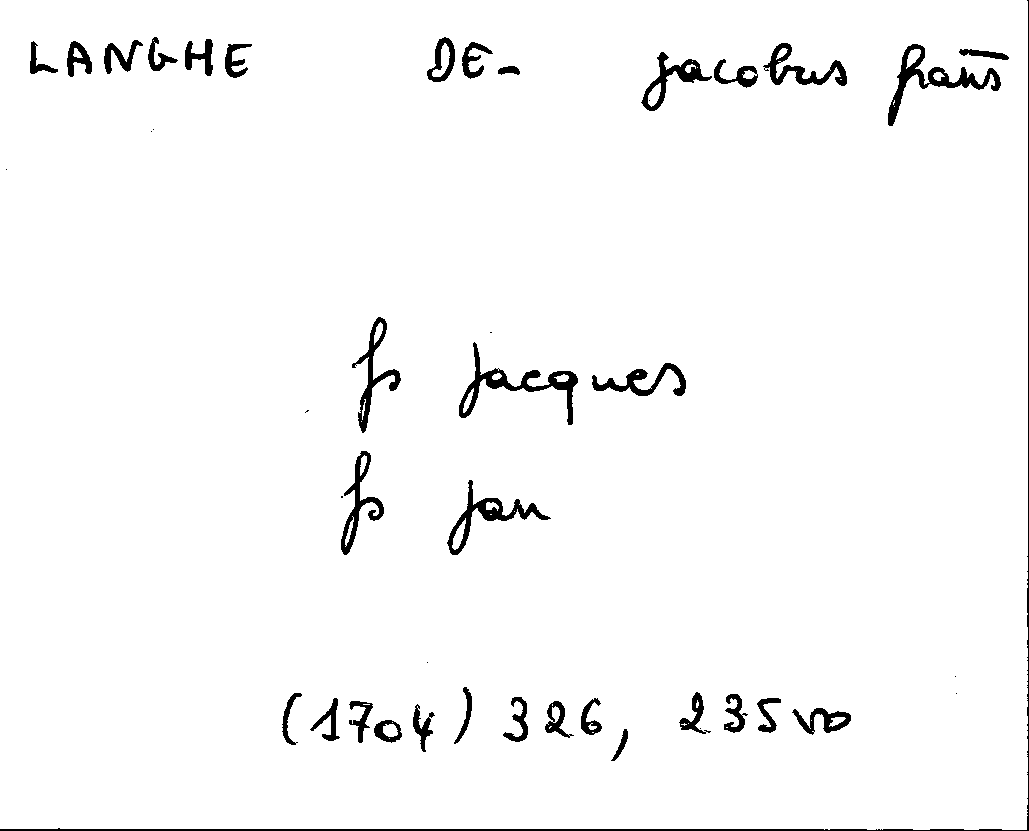 LANGHE DE- jacobus frans̄
fs jacques
fs jan
(1704) 326, 235 vo